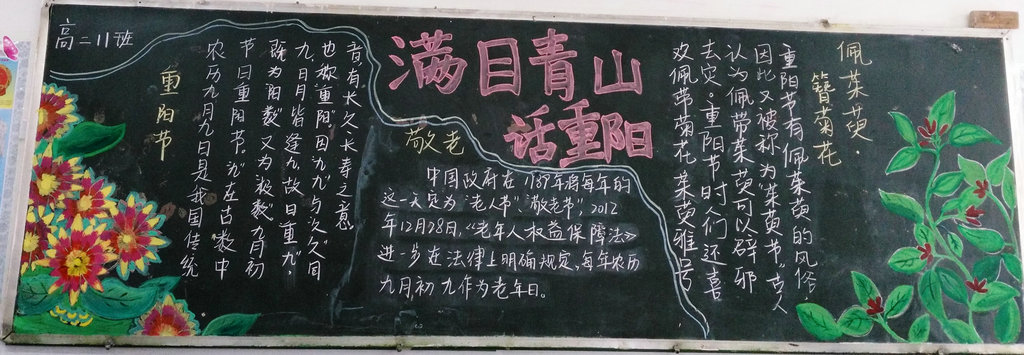 高二11班
满目青山
话重阳
重阳节
农历九月九日是我国传统
节日重阳节,“九”在古数中
既为“阳数”又为“极数”九月初
九,月日皆逢九,故曰“重九”,
也称重阳。因“九九”与“久久”同
音,有长久长寿之意
敬老
中国政府在1987年将每年的
这一天定为“老人节”“敬老节”,2012
年12月28日,《老年人权益保障法》
进一步在法律上明确规定,每年农历
九月初九作为老年日。
佩茱萸·
簪菊花
重阳节有佩茱萸的风俗,
因此又被称为“茱萸节”。古人
认为佩带茱萸可以辟邪
去灾。重阳节时们还喜
欢佩带菊花 茱萸雅号